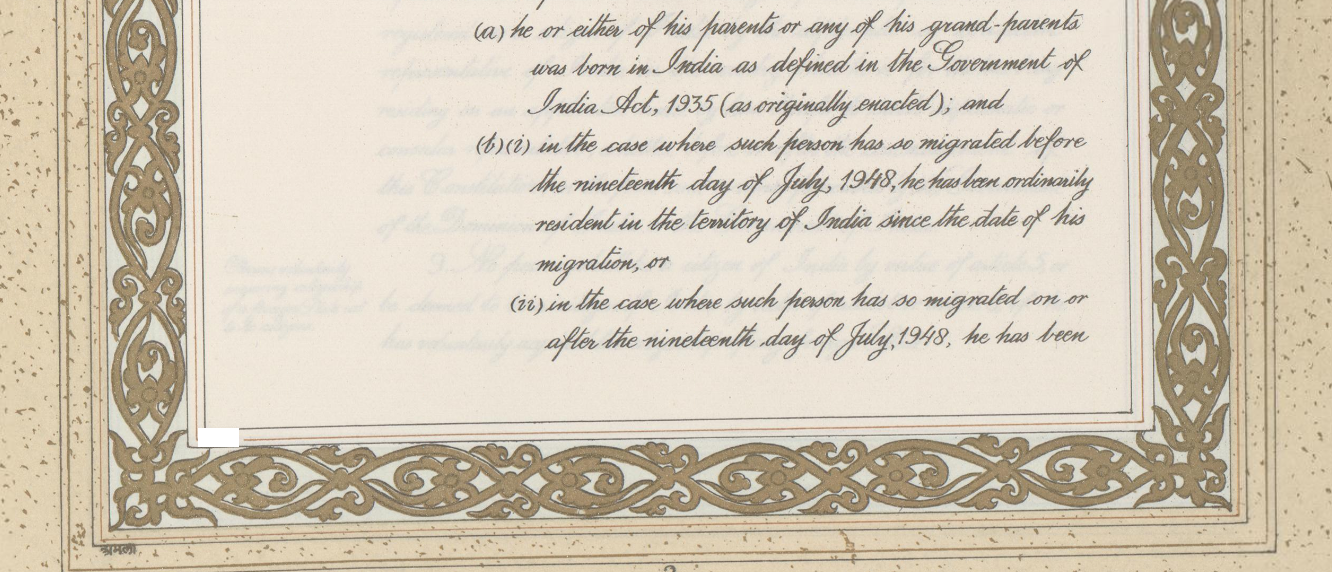 (a) he or either of his parents or any of his grand-parents
was born in India as defined in the Government of
India Act, 1935 (as originally enacted); and
(b)(i) in the case where such person has so migrated before
the nineteenth day of July, 1948, he has been ordinarily
resident in the territory of India since the date of his
migration, or
(ii) in the case where such person has so migrated on or
after the nineteenth day of July, 1948, he has been